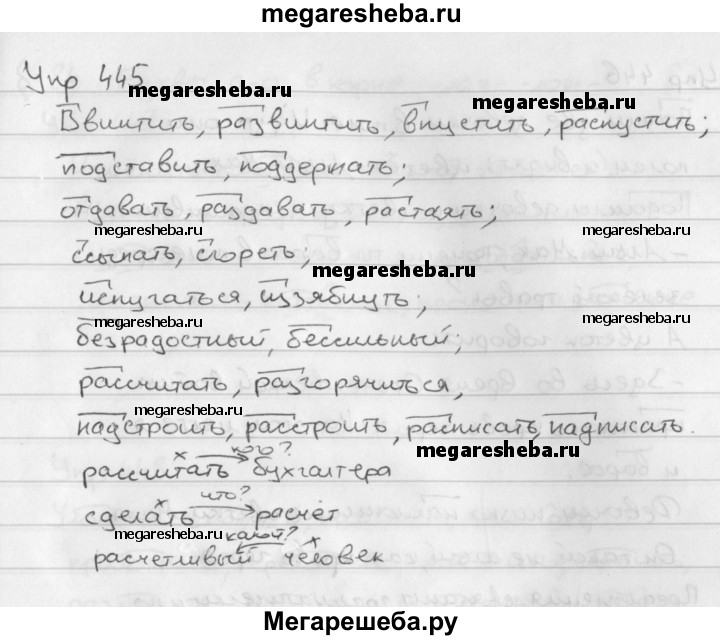 megaresheba.ru
Упр 445
megaresheba.ru
megaresheba.ru
Ввинтить, развинтить, впустить, распустить;
подставить, поддержать;
отдавать, раздавать, растаять;
megaresheba.ru
megaresheba.ru
ссыпать, сгореть;
megaresheba.ru
испугаться, иззябнуть;
megaresheba.ru
megaresheba.ru
безрадостный, бессильный;
рассчитать, разгорячиться,
megaresheba.ru
надстроить, расстроить, расписать, надписать.
кого?
megaresheba.ru
рассчитать бухгалтера
что?
сделать расчёт
megaresheba.ru
какой?
расчетливый человек
Мегарешеба.ру